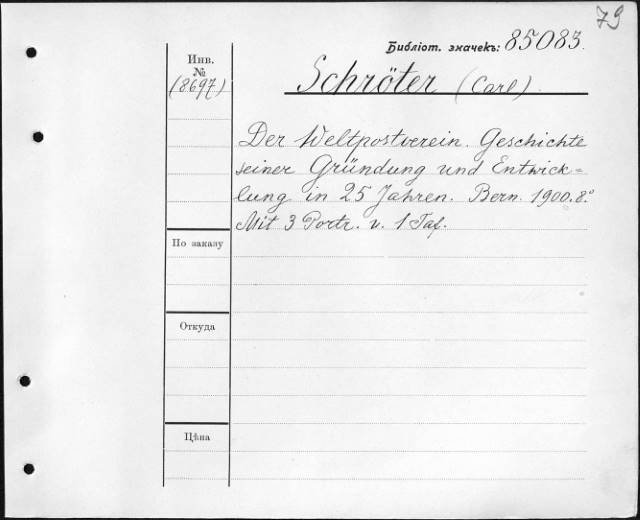 79
Библіот. значекъ: 85083.
Инв.
№
(8697)
Schröter (Carl)
Der Weltpostverein. Geschichte
seiner Gründung und Entwick=
lung in 25 Jahren. Bern. 1900. 8.°
Mit 3 Portr. u. 1 Taf.
По заказу
Откуда
Цѣна